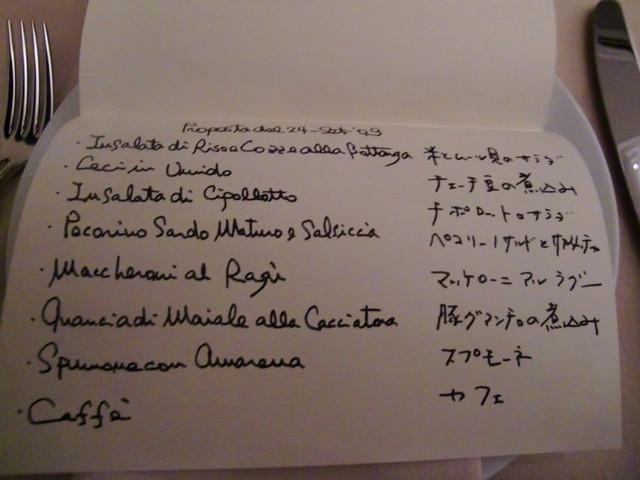 Proposta del 24-Set-'09
· Insalata di Riso e Cozze alla Bottarga 米とムール貝のサラダ
· Ceci in Umido チェーチ豆の煮込み
· Insalata di Cipollotto チポロットのサラダ
· Pecorino Sardo Maturo e Salsiccia ペコリーノサルドと
· Maccheroni al Ragù マッケローニアルラグー
· Guancia di Maiale alla Cacciatora 豚グアンチャの煮込み
· Spumone con Amarena スプモーネ
· Caffè カフェ